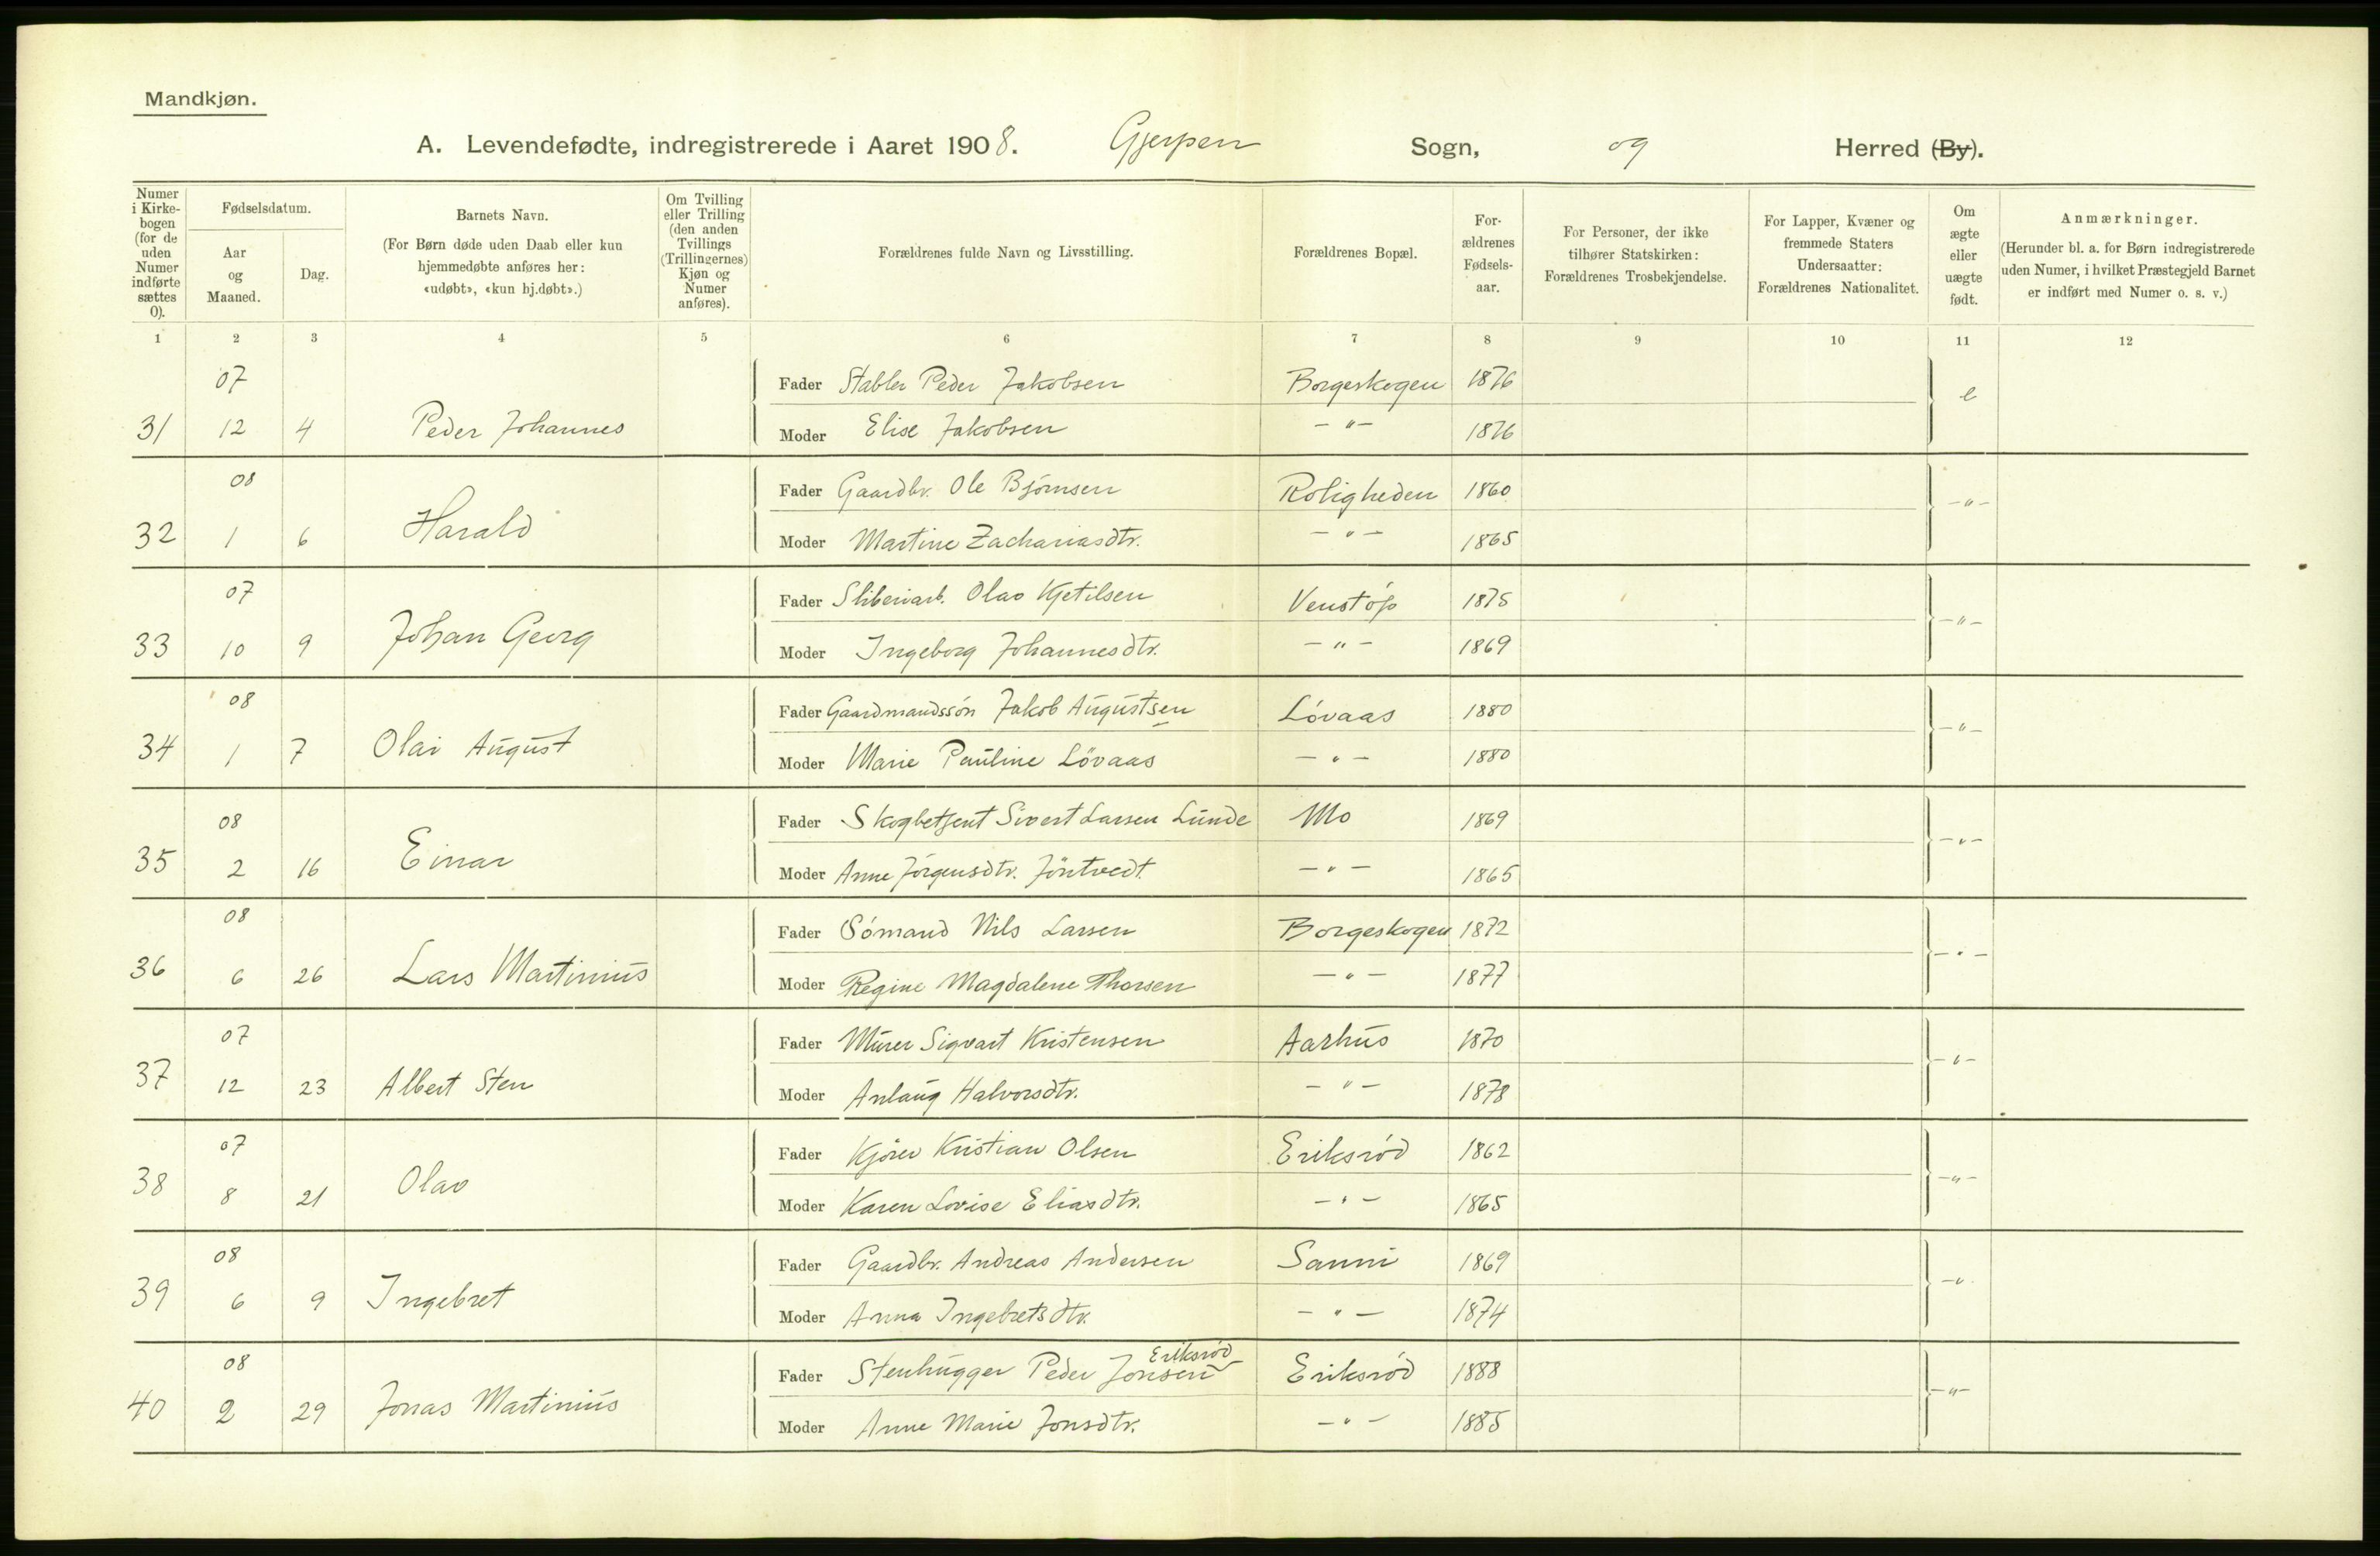 Mandkjøn.
A. Levendefødte, indregistrerede i Aaret 1908. Gjerpen Sogn, og Herred (By).
Numer i Kirke-bogen (for de uden Numer indførte sættes 0).
Fødselsdatum.
Aar og Maaned.
Dag.
Barnets Navn.
(For Børn døde uden Daab eller kun hjemmedøbte anføres her: «udøbt», «kun hj.døbt».)
Om Tvilling eller Trilling (den anden Tvillings (Trillingernes) Kjøn og Numer anføres).
Forældrenes fulde Navn og Livsstilling.
Forældrenes Bopæl.
For-ældrenes Fødsels-aar.
For Personer, der ikke tilhører Statskirken: Forældrenes Trosbekjendelse.
For Lapper, Kvæner og fremmede Staters Undersaatter: Forældrenes Nationalitet.
Om ægte eller uægte født.
Anmærkninger.
(Herunder bl. a. for Børn indregistrerede uden Numer, i hvilket Præstegjeld Barnet er indført med Numer o. s. v.)
1 2 3 4 5 6 7 8 9 10 11 12
07 Fader Stabler Peder Jakobsen Borgeskogen 1876 e
31 12 4 Peder Johannes Moder Elise Jakobsen —"— 1876
08 Fader Gaardbr. Ole Björnsen Roligheden 1860 —"—
32 1 6 Harald Moder Martine Zachariasdtr. —"— 1865
07 Fader Sliberiarb. Olav Kjetilsen Venstöp 1875 —"—
33 10 9 Johan Georg Moder Ingeborg Johannesdtr. —"— 1869
08 Fader Gaardmandssön Jakob Augustsen Lövaas 1880 —"—
34 1 7 Olai August Moder Marie Pauline Lövaas —"— 1880
08 Fader Skogbetjent Sivert Larsen Lunde Mo 1869 —"—
35 2 16 Einar Moder Anne Jörgensdtr. Jöntvedt —"— 1865
08 Fader Sömand Nils Larsen Borgeskogen 1872 —"—
36 6 26 Lars Martinius Moder Regine Magdalene Thorsen —"— 1877
07 Fader Murer Sigvart Kristensen Aarhus 1870 —"—
37 12 23 Albert Sten Moder Anlaug Halvorsdtr. —"— 1878
07 Fader Kjörer Kristian Olsen Eriksröd 1862 —"—
38 8 21 Olav Moder Karen Lovise Eliasdtr. —"— 1865
08 Fader Gaardbr. Andreas Andersen Sanni 1869 —"
39 6 9 Ingebret Moder Anna Ingebretsdtr. —"— 1874
Eriksröd
08 Fader Stenhugger Peder Jonsen Eriksröd 1888 —"—
40 2 29 Jonas Martinius Moder Anne Marie Jonsdtr. —"— 1885